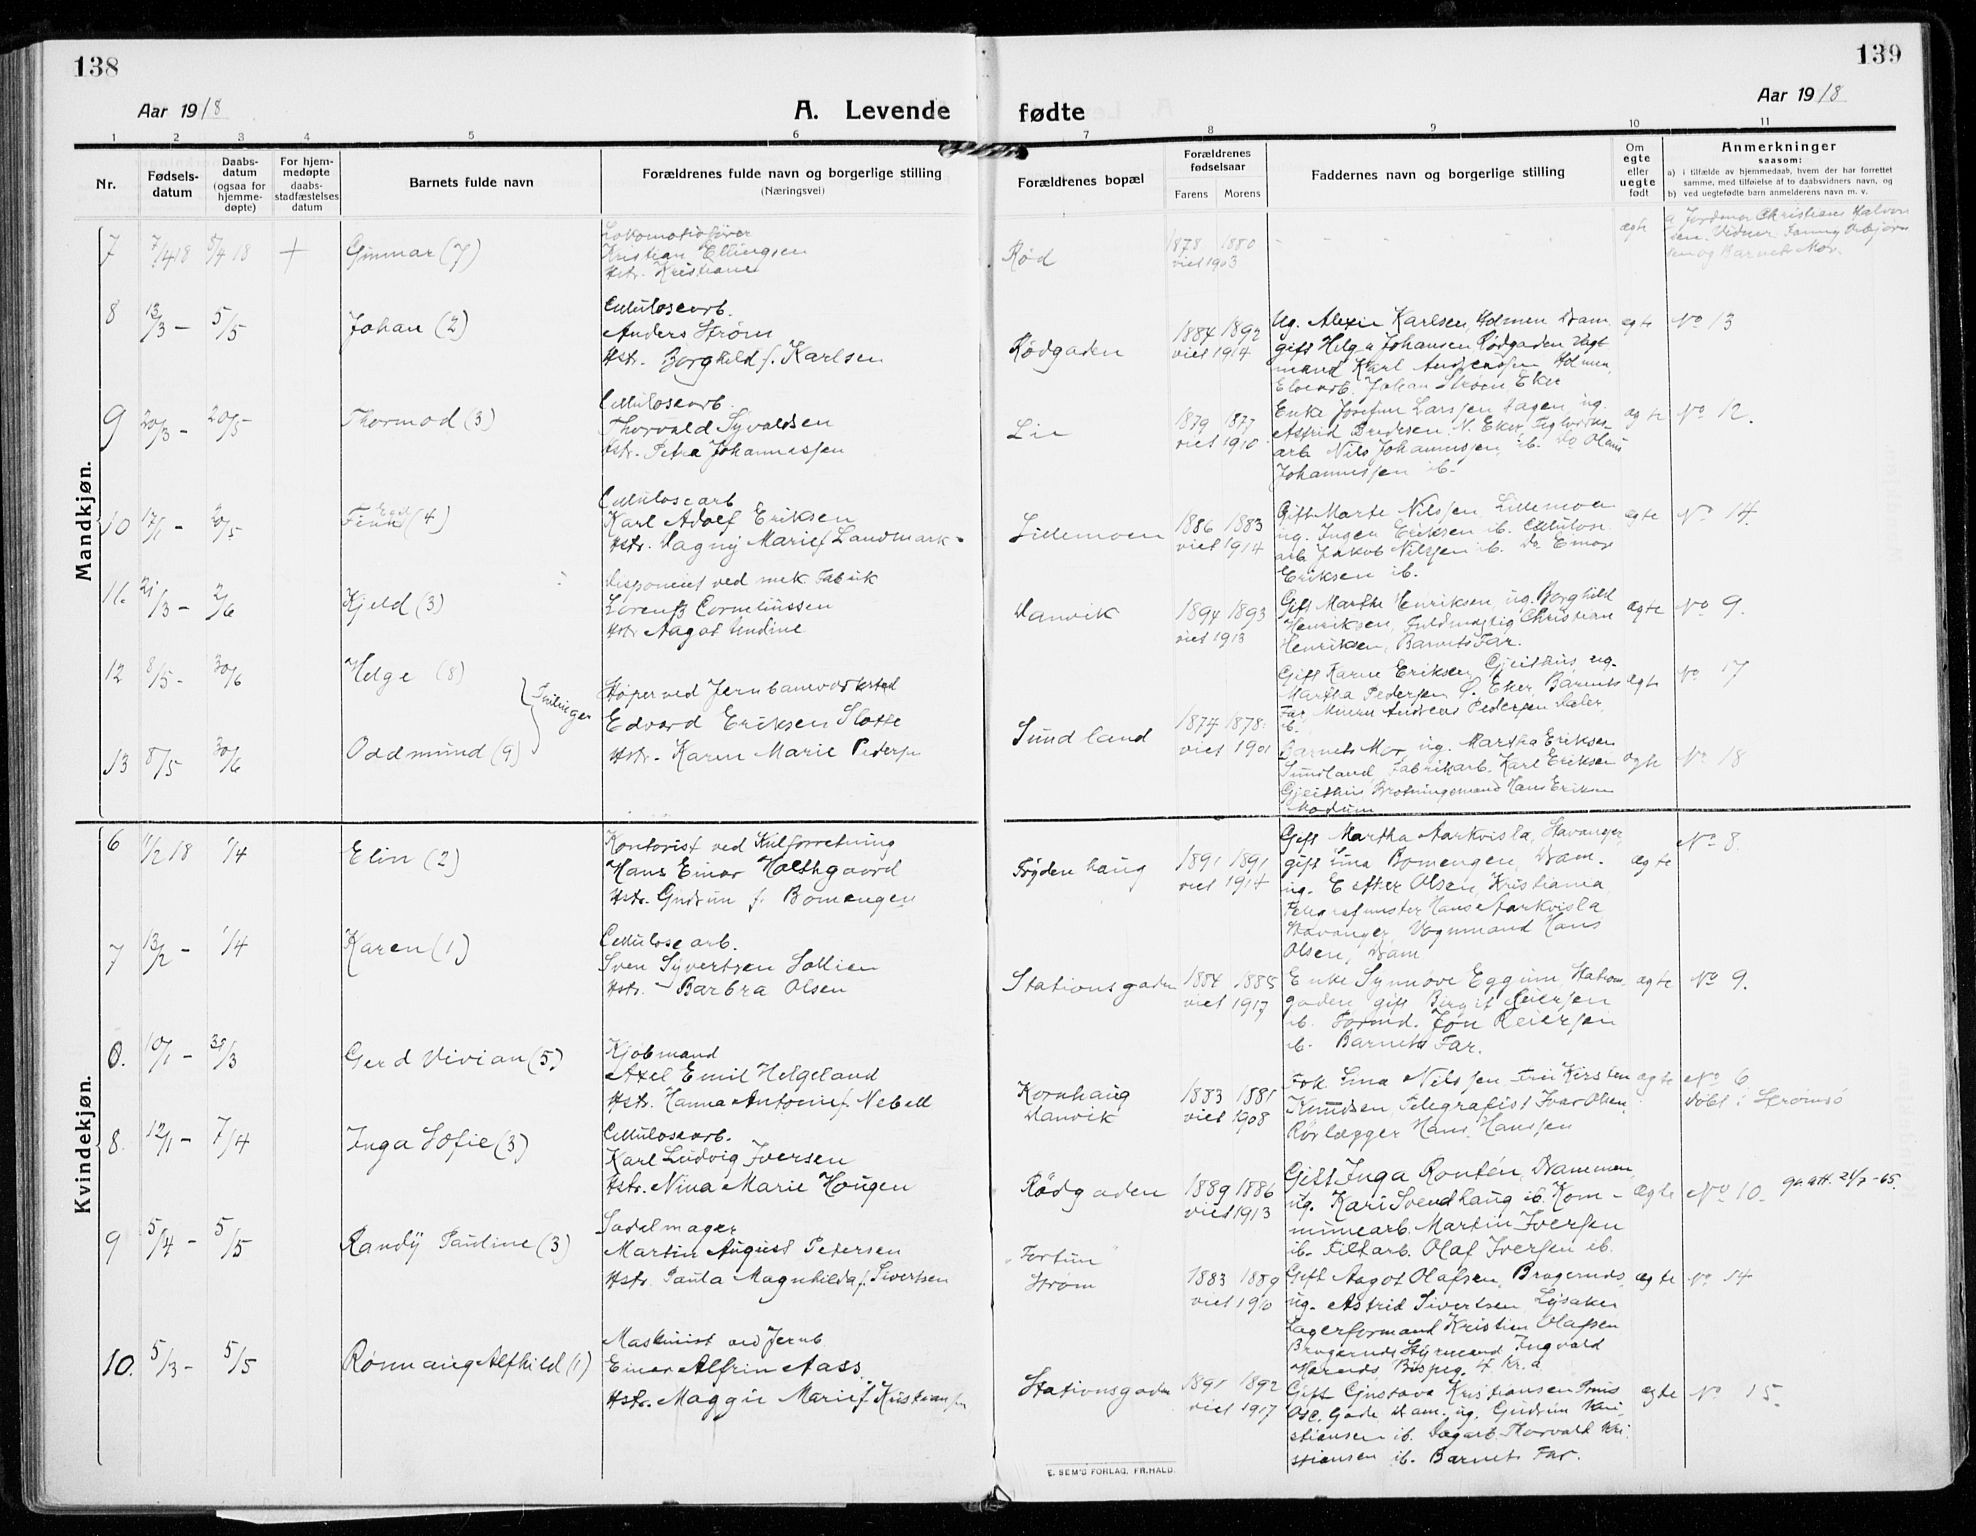 138
139
Aar 1918
A. Levende fødte
Aar 1918
1 2 3 4 5 6 7 8 9 10 11
Nr.
Fødsels-
datum
Daabs-
datum
(ogsaa for
hjemme-
døpte)
For hjem-
medøpte
daabs-
stadfæstelses
datum
Barnets fulde navn
Forældrenes fulde navn og borgerlige stilling
(Næringsvei)
Forældrenes bopæl
Forældrenes
fødselsaar
Farens Morens
Faddernes navn og borgerlige stilling
Om
egte
eller
uegte
født
Anmerkninger
saasom:
a) i tilfælde av hjemmedaab, hvem der har forrettet
samme, med tilføielse af to daabsvidners navn, og
b) ved uegtefødte barn anmelderens navn m. v.
Mandkjøn.
7 7/4 18 5/4 18 + Gunnar (7)
Lokomotivfører
Kristian Ellingsen
Hstr. Kristiane
Rød
1878 1880
viet 1903
ægte
Jordmor Christiane Halvor
sen. Vidner Fanny Asbjørn
sen og Barnets Mor.
8 13/3 — 5/5 Johan (2)
Celluloseerb.
Anders Strøm
Hstr. Borghild f. Karlsen
Rødgaden
1884 1892
viet 1914
Ug. Alexie Karlsen, Holmen Dram.
gift Helga Johansen Rødgaden Vagt
mand Karl Andersen Holmen,
Johan Strøm Eker
egte No 13
9 20/3 — 20/5 Thormod (3)
Cellulosearb.
Thorvald Syvaldsen
Hstr. Petra Johannessen
Lie
1879 1877
viet 1910
Enke Josefine Larssen Hagen, ug.
Astrid Bredesen, N. Eker, Teglverks
arb. Nils Johannessen ib. Do Olaus
Johannessen ib.
ægte No 12.
10 17/1 — 20/5 Finn (4)
Cellulosearb
Karl Adolf Eriksen
Hstr. Dagny Marie f Landmark
Lillemoen
1886 1883
viet 1914
Gift Marte Nilssen, Lillemoen
ug. Inga Eriksen ib. Cellulose
arb. Jakob Nilssen ib. Do Einar
Eriksen ib.
egte No 14.
11. 21/3 — 2/6 Kjeld (3)
Disponent ved mek. Fabrik
Lorentz Corneliussen
Hstr Aagot Undine
Danvik
1894 1893
viet 1913
Gift Marthe Henriksen, ug. Borghild
Henriksen, Fuldmægtig Christian
Henriksen, Barnets Far.
ægte No 9.
12 8/5 — 30/6 Helge (8)
Tvilinger
Støper ved Jernbaneverksted
Edvard Eriksen Slotte
Hstr. Karen Marie Pedersen
Sundland
1874 1878
viet 1901
Gift Karen Eriksen, Gjeithus, ug.
Martha Pedersen Ø. Eker, Barnets
Far, Murer Andreas Pedersen Eker
ib.
egte No 17
13 8/5 30/6 Oddmund (9)
Barnets Mor, ug. Martha Eriksen
Sundland, Fabrikarb. Karl Eriksen
Gjeithus Hans Eriksen
Modum
ægte No 18
Kvindekjøn.
6 11/2 18 1/4 Elin (2)
Kontorist ved Kulforretning
Hans Einar Holthgaard
Hstr. Gudrun f. Bomengen
Frydenhaug
1891 1891
viet 1914
Gift Martha Aarkvisla, Stavanger,
gift Lina Bomengen, Dram.
ug. Esther Olsen, Kristiania
Telegrafmester Hans Aarkvisla
Stavanger, Vognmand Hans
Olsen, Dram
ægte
No 8.
7 13/2 — 1/4 Karen (1)
Cellulosearb.
Sven Syvertsen Sollien
Hstr. — Barbra Olsen
Stationsgaden
1884 1885
viet 1917
Enke Synnøve Eggum, Station
gaden, gift Birgit Reiersen
ib. Formd. Jon Reiersen
ib. Barnets Far.
ægte No 9.
0. 10/1 — 31/3 Gerd Vivian (5)
Kjøbmand
Axel Emil Helgeland
Hstr. Hanna Antonie f. Nebell
Kornhaug
Danvik
1883 1881
viet 1908
Frk Lina Nilssen Fru Kirsten
Knudsen, Telegrafist Ivar Olsen
Rørlægger Hans Hanssen
ægte No 6.
døbt i Strømsø
8. 12/1 — 7/4 Inga Sofie (3)
Cellulosearb.
Karl Ludvig Iversen
Hstr. Nina Marie Haugen
Rødgaden
1889 1886
viet 1913
Gift Inga Rontén, Drammen
ug. Kari Svendhaug ib. Kom-
munearb. Martin Iversen
ib. Filtarb. Olaf Iversen ib.
ægte No 10. 24/7-65.
9 5/4 — 5/5 Randy Pauline (3)
Sadelmager
Martin August Petersen
Hstr. Paula Magnhilda f. Sivertsen
"Fortun"
Strøm
1883 1889
viet 1910
Gift Aagot Olafsen, Bragernds,
ug. Astrid Sivertsen, Lysaker
Lagerformand Kristian Olafsen
Bragernds Styrmand Ingvald
Bispeg. 4 Kr.a
ægte No 14
10. 5/3 — 5/5 Rønnaug Alfhild (1)
Maskinist ved Jernb
Einar Alfrin Aass.
Hstr. Maggie Marie f Kristiansen
Stationsgaden
1891 1892
viet 1917
Gift Gustava Kristiansen Prins
Osc. Gade Dram. ug. Gudrun Kri-
stiansen ib. Dagarb. Thorvald Kri.
stiansen ib. Barnets Far.
ægte No 15.
E. SEM'S FORLAG, FR.HALD.